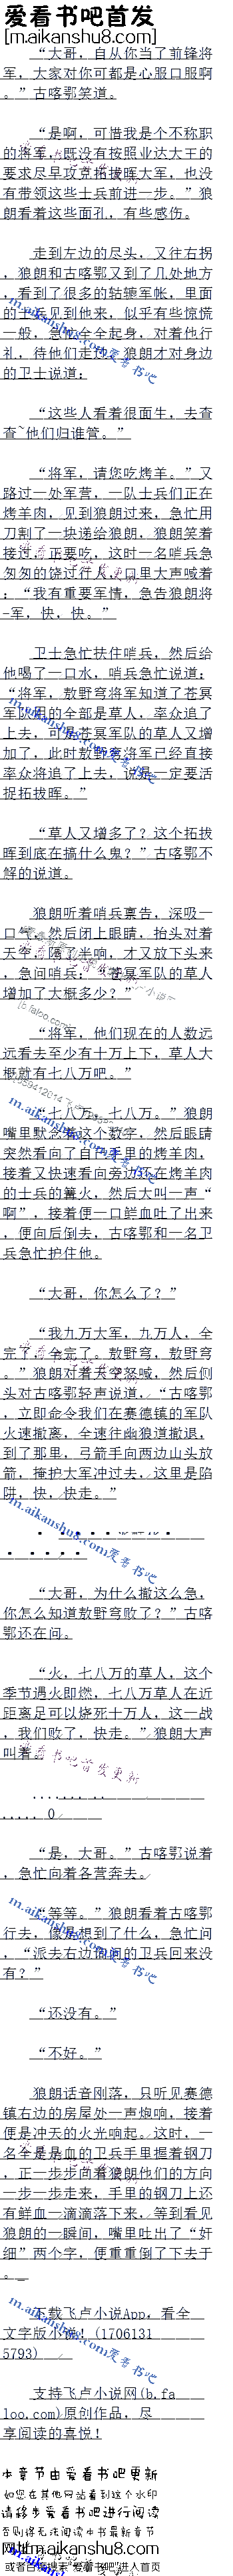 爱看书吧首发
[m.aikanshu8.com]
“大哥，自从你当了前锋将
军，大家对你可都是心服口服啊
。”古喀鄂笑道。
“是啊，可惜我是个不称职
的将军，既没有按照业达大王的
要求尽早攻克拓拔晖大军，也没
有带领这些士兵前进一步。”狼
朗看着这些面孔，有些感伤。
走到左边的尽头，又往右拐
，狼朗和古喀鄂又到了几处地方
，看到了很多的轱辘军帐，里面
的士兵见到他来，似乎有些惊慌
一般，急忙全全起身，对着他行
礼，待他们走过，狼朗才对身边
的卫士说道：
“这些人看着很面生，去查
查~他们归谁管。”
“将军，请您吃烤羊。”又
路过一处军营，一队士兵们正在
烤羊肉，见到狼朗过来，急忙用
刀割了一块递给狼朗，狼朗笑着
接过，正要吃，这时一名哨兵急
匆匆的饶过行人，口里大声喊着
：“我有重要军情，急告狼朗将
-军，快，快。”
卫士急忙扶住哨兵，然后给
他喝了一口水，哨兵急忙说道：
“将军，敖野穹将军知道了苍冥
军队用的全部是草人，率众追了
上去，可是苍冥军队的草人又增
加了，此时敖野穹将军已经直接
率众将追了上去，说是一定要活
捉拓拔晖。”
“草人又增多了？这个拓拔
晖到底在搞什么鬼？”古喀鄂不
解的说道。
狼朗听着哨兵禀告，深吸一
口气，然后闭上眼睛，抬头对着
天空，隔了半响，才又放下头来
，急问哨兵：“苍冥军队的草人
增加了大概多少？”
“将军，他们现在的人数远
远看去至少有十万上下，草人大
概就有七八万吧。”
“七八万，七八万。”狼朗
嘴里默念着这个数字，然后眼睛
突然看向了自己手里的烤羊肉，
接着又快速看向旁边不住烤羊肉
的士兵的篝火，然后大叫一声“
啊”，接着便一口鲜血吐了出来
，便向后倒去，古喀鄂和一名卫
兵急忙护住他。
“大哥，你怎么了？”
“我九万大军，九万人，全
完了，全完了。敖野穹，敖野穹
。”狼朗对着天空怒喊，然后侧
头对古喀鄂轻声说道，“古喀鄂
，立即命令我们在赛德镇的军队
火速撤离，全速往幽狼道撤退，
到了那里，弓箭手向两边山头放
箭，掩护大军冲过去，这里是陷
阱，快，快走。”
“大哥，为什么撤这么急，
你怎么知道敖野穹败了？”古喀
鄂还在问。
“火，七八万的草人，这个
季节遇火即燃，七八万草人在近
距离足可以烧死十万人，这一战
，我们败了，快走。”狼朗大声
叫着。
.... ... ..
..... 0
“是，大哥。”古喀鄂说着
，急忙向着各营奔去。
“等等。”狼朗看着古喀鄂
行去，像是想到了什么，急忙问
，“派去右边询问的卫兵回来没
有？”
“还没有。”
“不好。”
狼朗话音刚落，只听见赛德
镇右边的房屋处一声炮响，接着
便是冲天的火光响起。这时，一
名全是是血的卫兵手里握着钢刀
，正一步步向着狼朗他们的方向
一步一步走来，手里的钢刀上还
有鲜血一滴滴落下来，等到看见
狼朗的一瞬间，嘴里吐出了“奸
细”两个字，便重重倒了下去于
。
下载飞卢小说App，看全
文字版小说！(1706131
5793)
支持飞卢小说网(b.fa
loo.com)原创作品，尽
享阅读的喜悦！
本章节由爱看书吧更新
如您在其他网站看到这个水印
请移步爱看书吧进行阅读
否则将无法阅读本书最新章节
网址m.aikanshu8.com
或者百度搜索“爱看书吧”进入首页